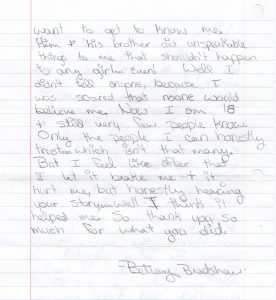 want to get to know me.
Him + his brother did unspeakable
things to me that shouldn't happen
to any girl... Ever! Well I
didn't tell anyone, because I
was scared that noone would
believe me. Now I am 18
+ still very few people know.
Only the people I can honestly
trust... which isn't that many.
But I feel like after that
I let it brake me + it
hurt me, but honestly hearing
your story... well I think it
helped me. So thank you so
much for what you did.
-Bethany Bradshaw-